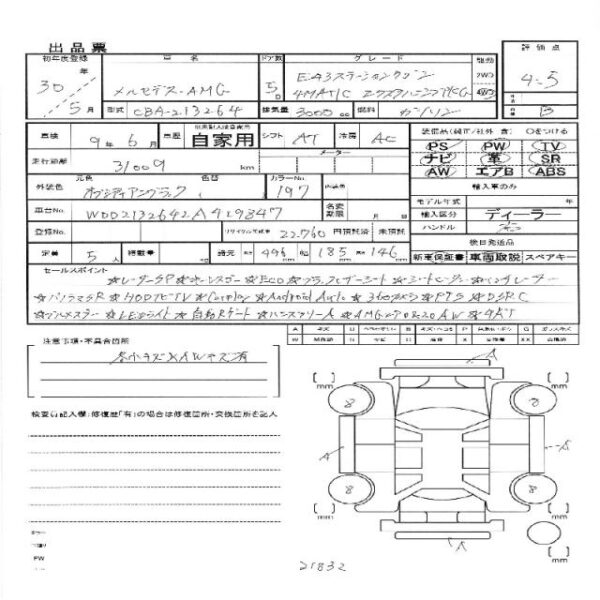 出品票
初年度登録 車名 ドア数 グレード 駆動 評価点
30年 メルセデス・AMG 5D E43ステーションワゴン 2WD 4.5
5月 4MATIC エクスクルーシブPKG 4WD
型式 CBA-213264 排気量 3000cc 燃料 ガソリン B
車検 9年 6月 車歴 自家用 シフト AT 冷房 AC
装備品(純正/社外 含) ○をつける
PS PW TV
ナビ 革 SR
AW エアB ABS
走行距離 31009 メーター
元色 色替 カラーNo.
外装色 オブシディアンブラック 197 内装色
輸入車のみ
モデル年式 年
車台No. WDD2132642A429847 名変期限 月 日
輸入区分 ディーラー
ハンドル 右
登録No. リサイクル預託金 22,760 円預託済 未預託
後日発送品
定員 5人 積載量 kg 諸元 長 496 cm 幅 185 cm 高 146 cm
新車保証書 車両取説 スペアキー
セールスポイント
★レーダーSP★キーレスゴー★ECO★ブラックレザーシート★シートヒーター★
★パノラマSR★HDDナビTV★Carplay★Android Auto★360°カメラ★PTS★DSRC
★LEDライト★自動Rゲート★ハンズフリーA★AMG★20AW★
注意事項・不具合箇所
小キズ AWキズ有
検査員記入欄:修復歴「有」の場合は修復箇所・交換箇所を記入
A
[ ] mm 8 8 [ ] mm
A A
[ ] mm 8 8 [ ] mm
A
[ ] mm
21832